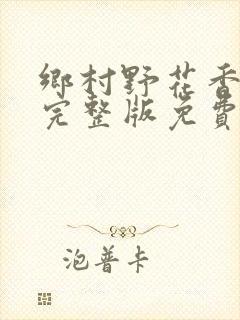 鄉村野花香
完整版免費
泡普卡